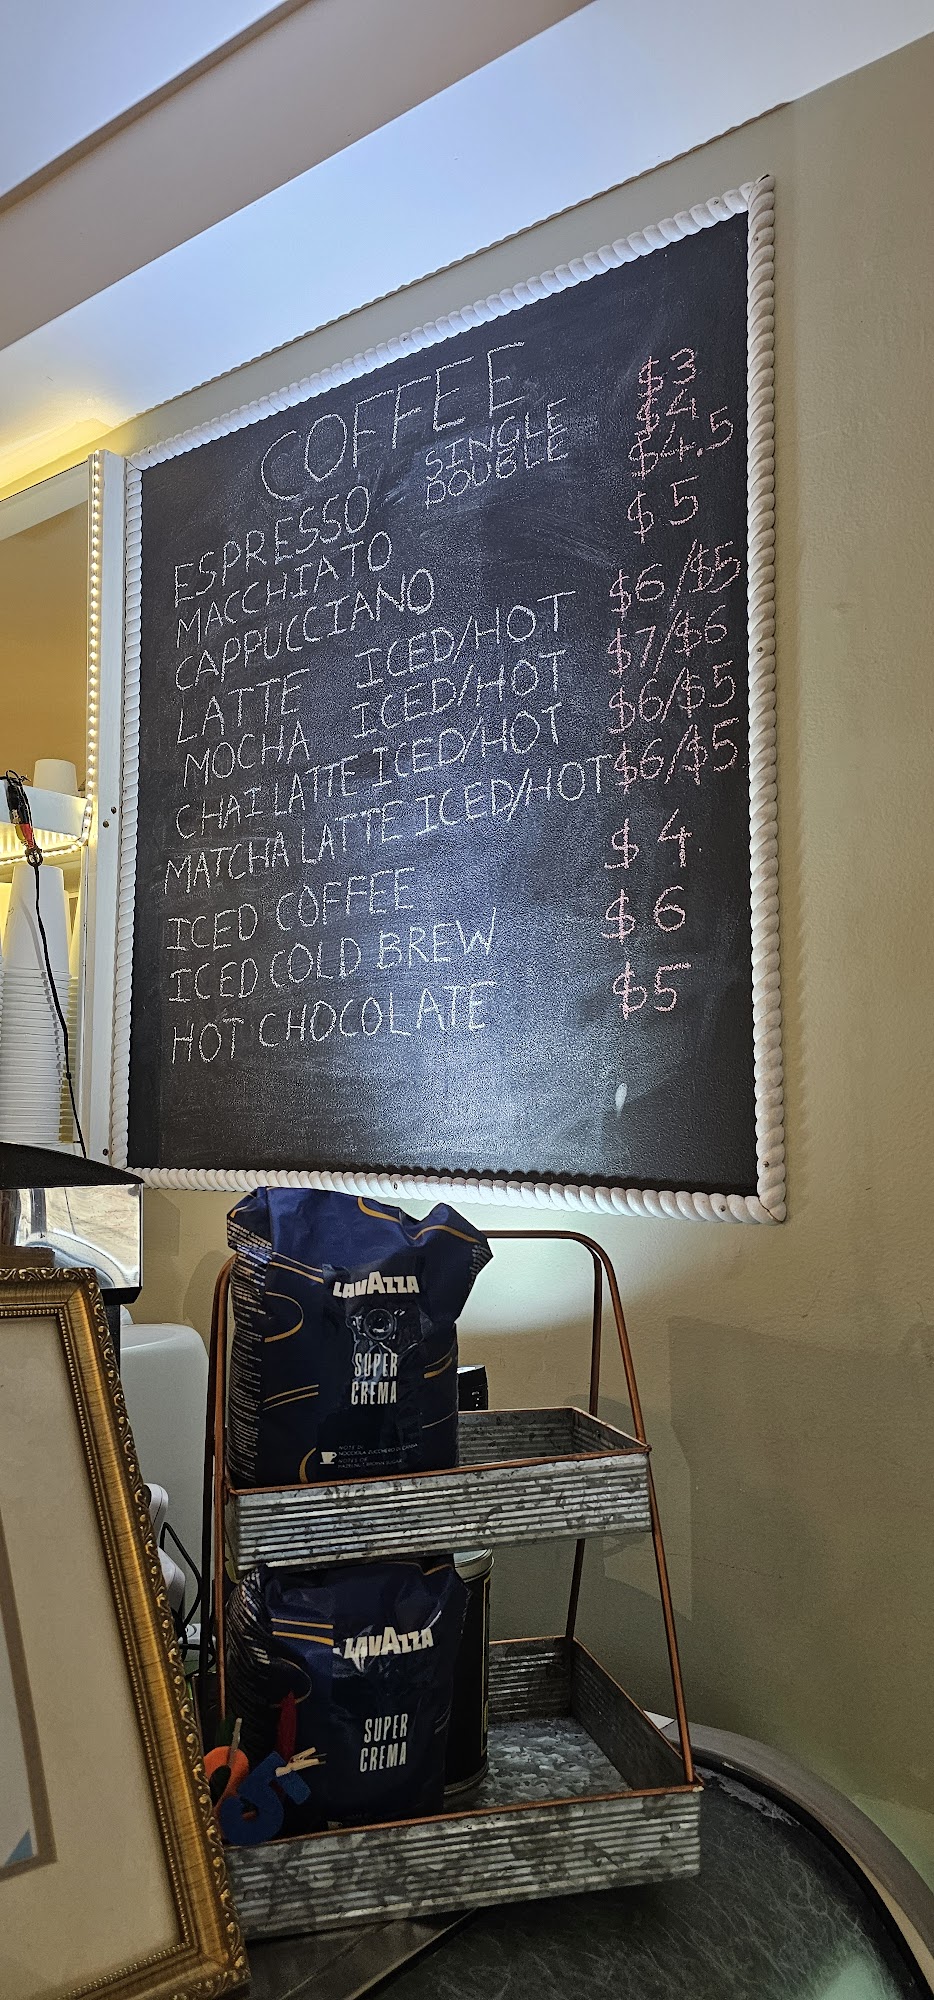 COFFEE
ESPRESSO SINGLE $3
DOUBLE $4
MACCHIATO $4.5
CAPPUCCIANO $5
LATTE ICED/HOT $6/$5
MOCHA ICED/HOT $7/$6
CHAI LATTE ICED/HOT $6/$5
MATCHA LATTE ICED/HOT $6/$5
ICED COFFEE $4
ICED COLD BREW $6
HOT CHOCOLATE $5
LAVAZZA
SUPER
CREMA
NOTE DI
NOCCIOLA, ZUCCHERO DI CANNA
NOTES OF
LAVAZZA
SUPER
CREMA